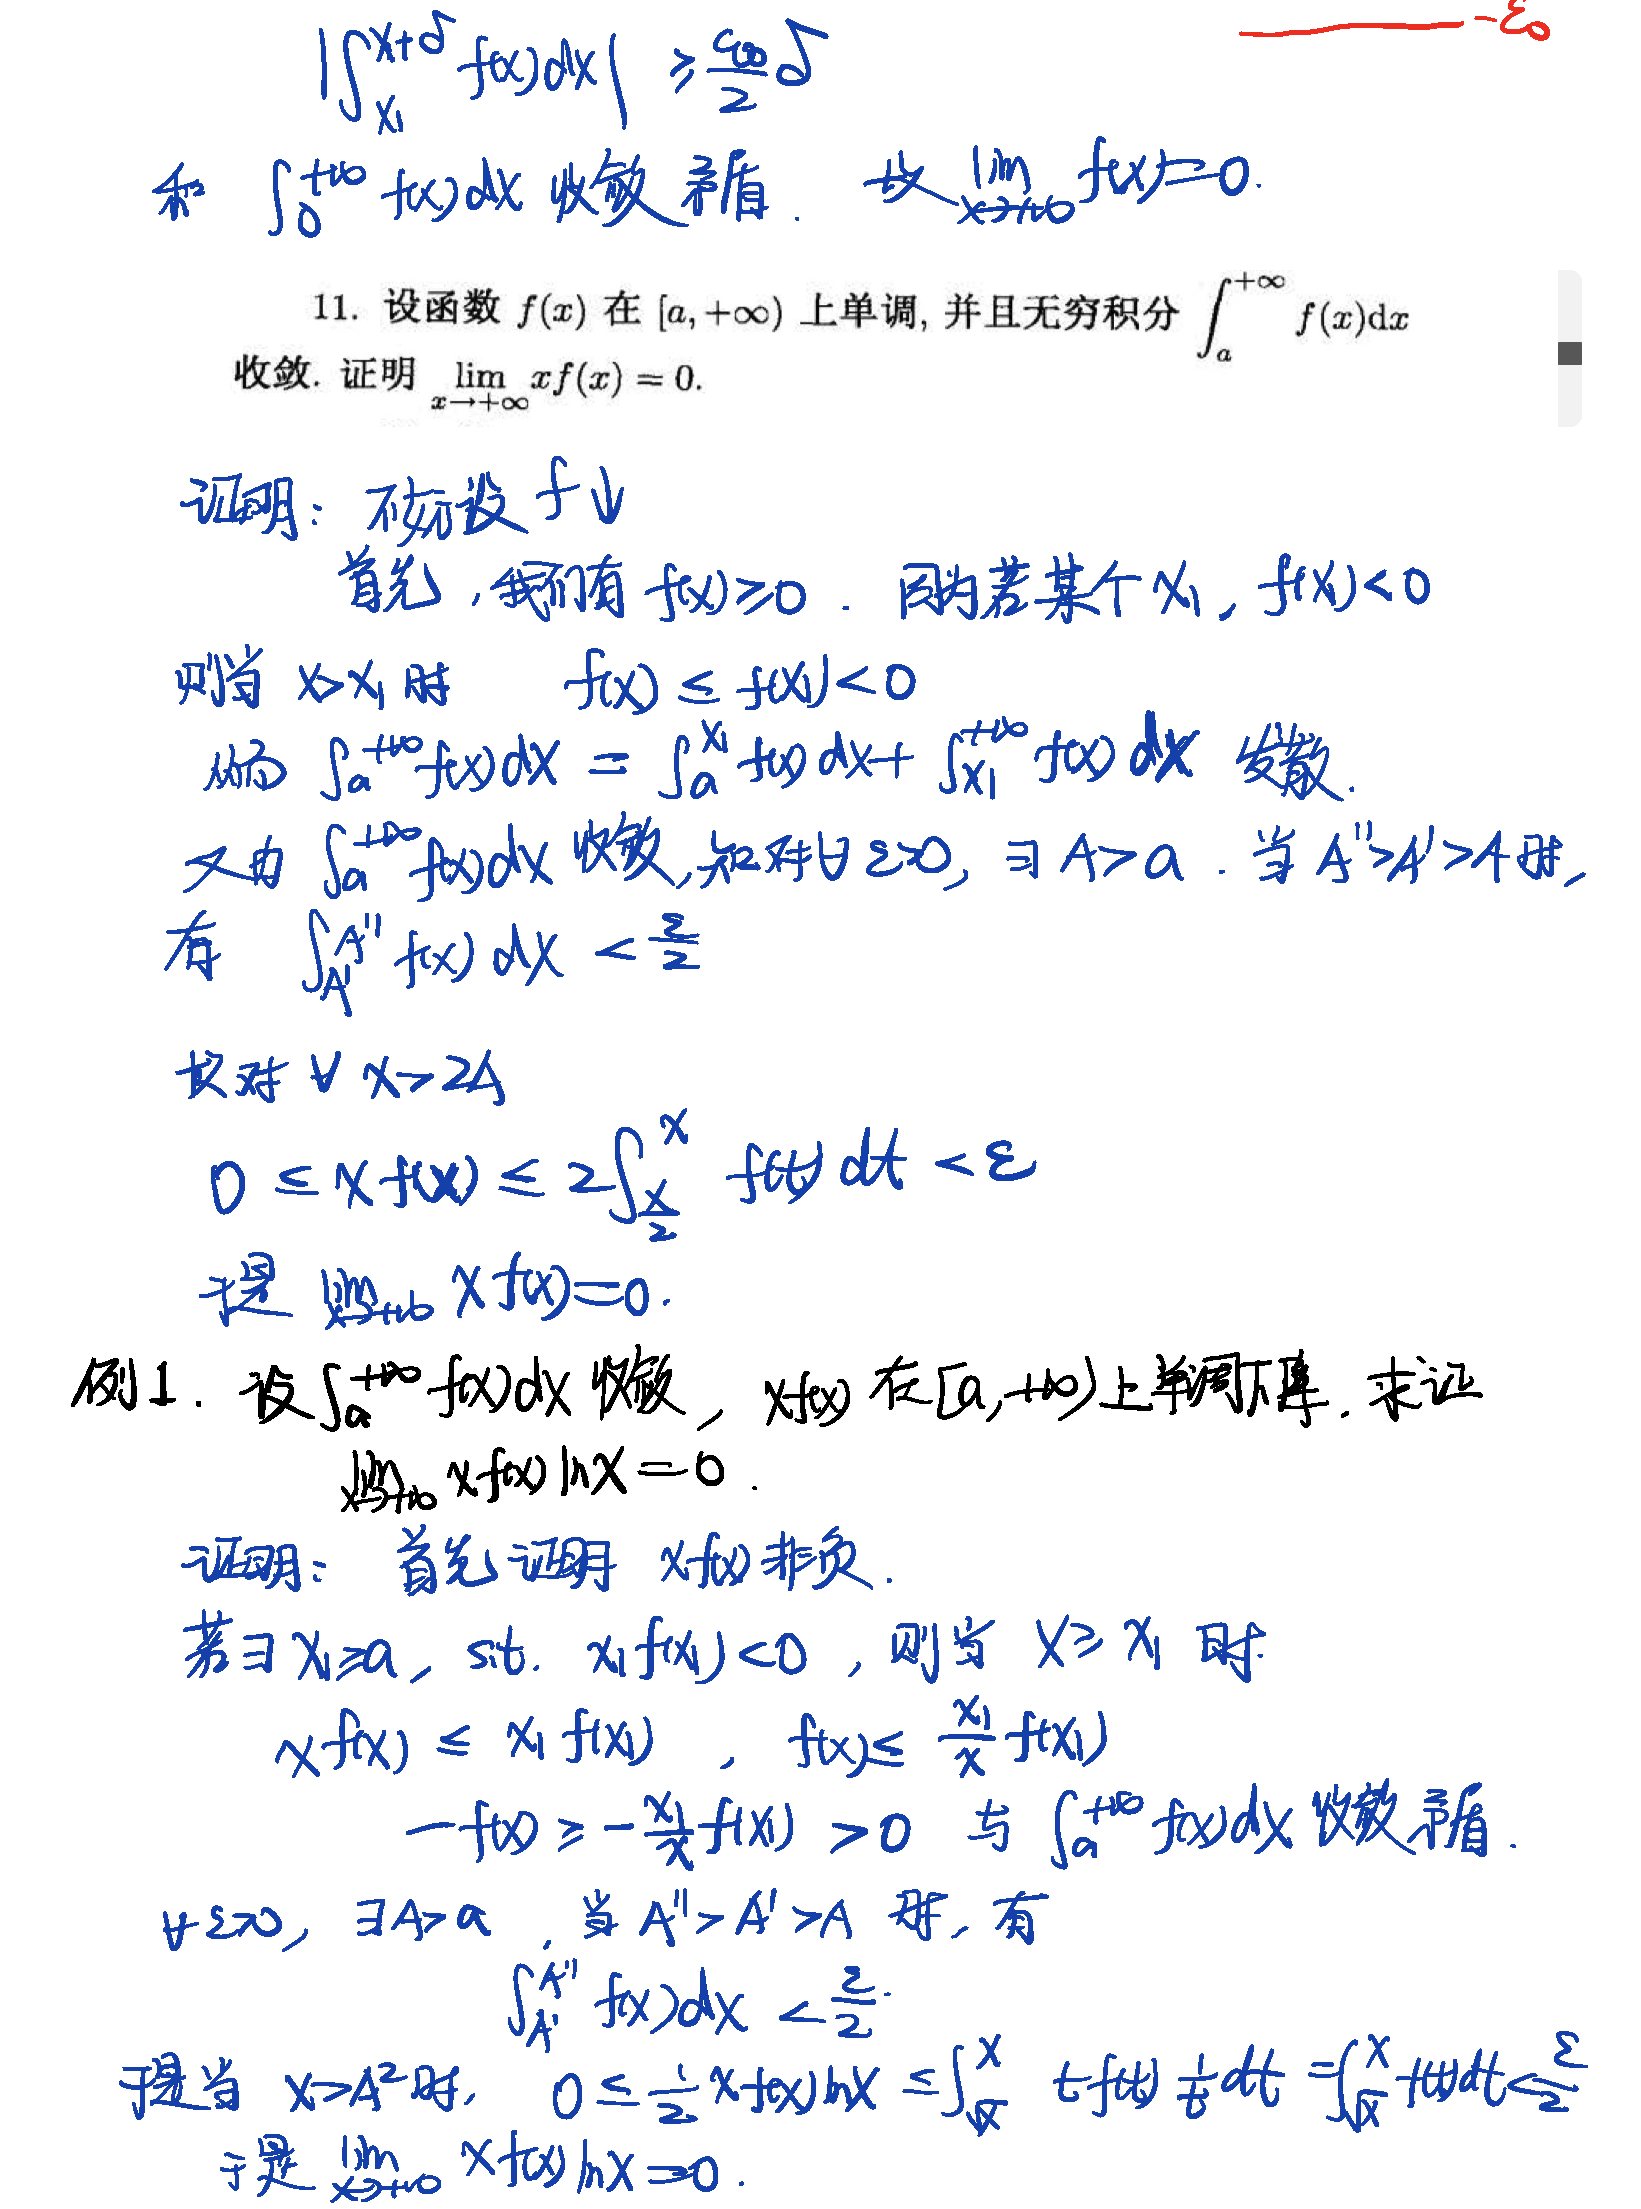 -ε₀
|∫_{x₁}^{x₁+δ} f(x)dx| ≥ \frac{ε₀}{2} δ
和 ∫_0^{+∞} f(x)dx 收敛矛盾. 故 lim_{x→+∞} f(x)=0.
11. 设函数 f(x) 在 [a,+∞) 上单调, 并且无穷积分 ∫_a^{+∞} f(x)dx
收敛. 证明 lim_{x→+∞} xf(x) = 0.
证明: 不妨设 f↓
首先, 我们有 f(x)≥0. 因为若某个 x₁, f(x₁)<0
则当 x>x₁ 时 f(x) ≤ f(x₁)<0
从而 ∫_a^{+∞} f(x)dx = ∫_a^{x₁} f(x)dx + ∫_{x₁}^{+∞} f(x)dx 发散.
又由 ∫_a^{+∞} f(x)dx 收敛, 知对∀ε>0, ∃A>a. 当 A''>A'>A 时,
有 ∫_{A'}^{A''} f(x)dx < \frac{ε}{2}
故对 ∀ x>2A
0 ≤ xf(x) ≤ 2∫_{\frac{x}{2}}^{x} f(t)dt < ε
于是 lim_{x→+∞} xf(x)=0.
例1. 设∫_a^{+∞} f(x)dx 收敛, xf(x) 在[a,+∞)上单调下降. 求证
lim_{x→+∞} xf(x)lnx=0.
证明: 首先证明 xf(x) 非负.
若∃x₁≥a, s.t. x₁f(x₁)<0, 则当 x≥x₁ 时.
xf(x) ≤ x₁f(x₁), f(x)≤ \frac{x₁}{x} f(x₁)
-f(x) ≥ -\frac{x₁}{x} f(x₁) >0 与 ∫_a^{+∞} f(x)dx 收敛矛盾.
∀ε>0, ∃A>a, 当 A''>A'>A 时, 有
∫_{A'}^{A''} f(x)dx < \frac{ε}{2}.
于是当 x>A² 时, 0≤\frac{1}{2}xf(x)lnx ≤∫_{√x}^{x} tf(t)\frac{1}{t}dt =∫_{√x}^{x} f(t)dt<\frac{ε}{2}
于是 lim_{x→+∞} xf(x)lnx=0.